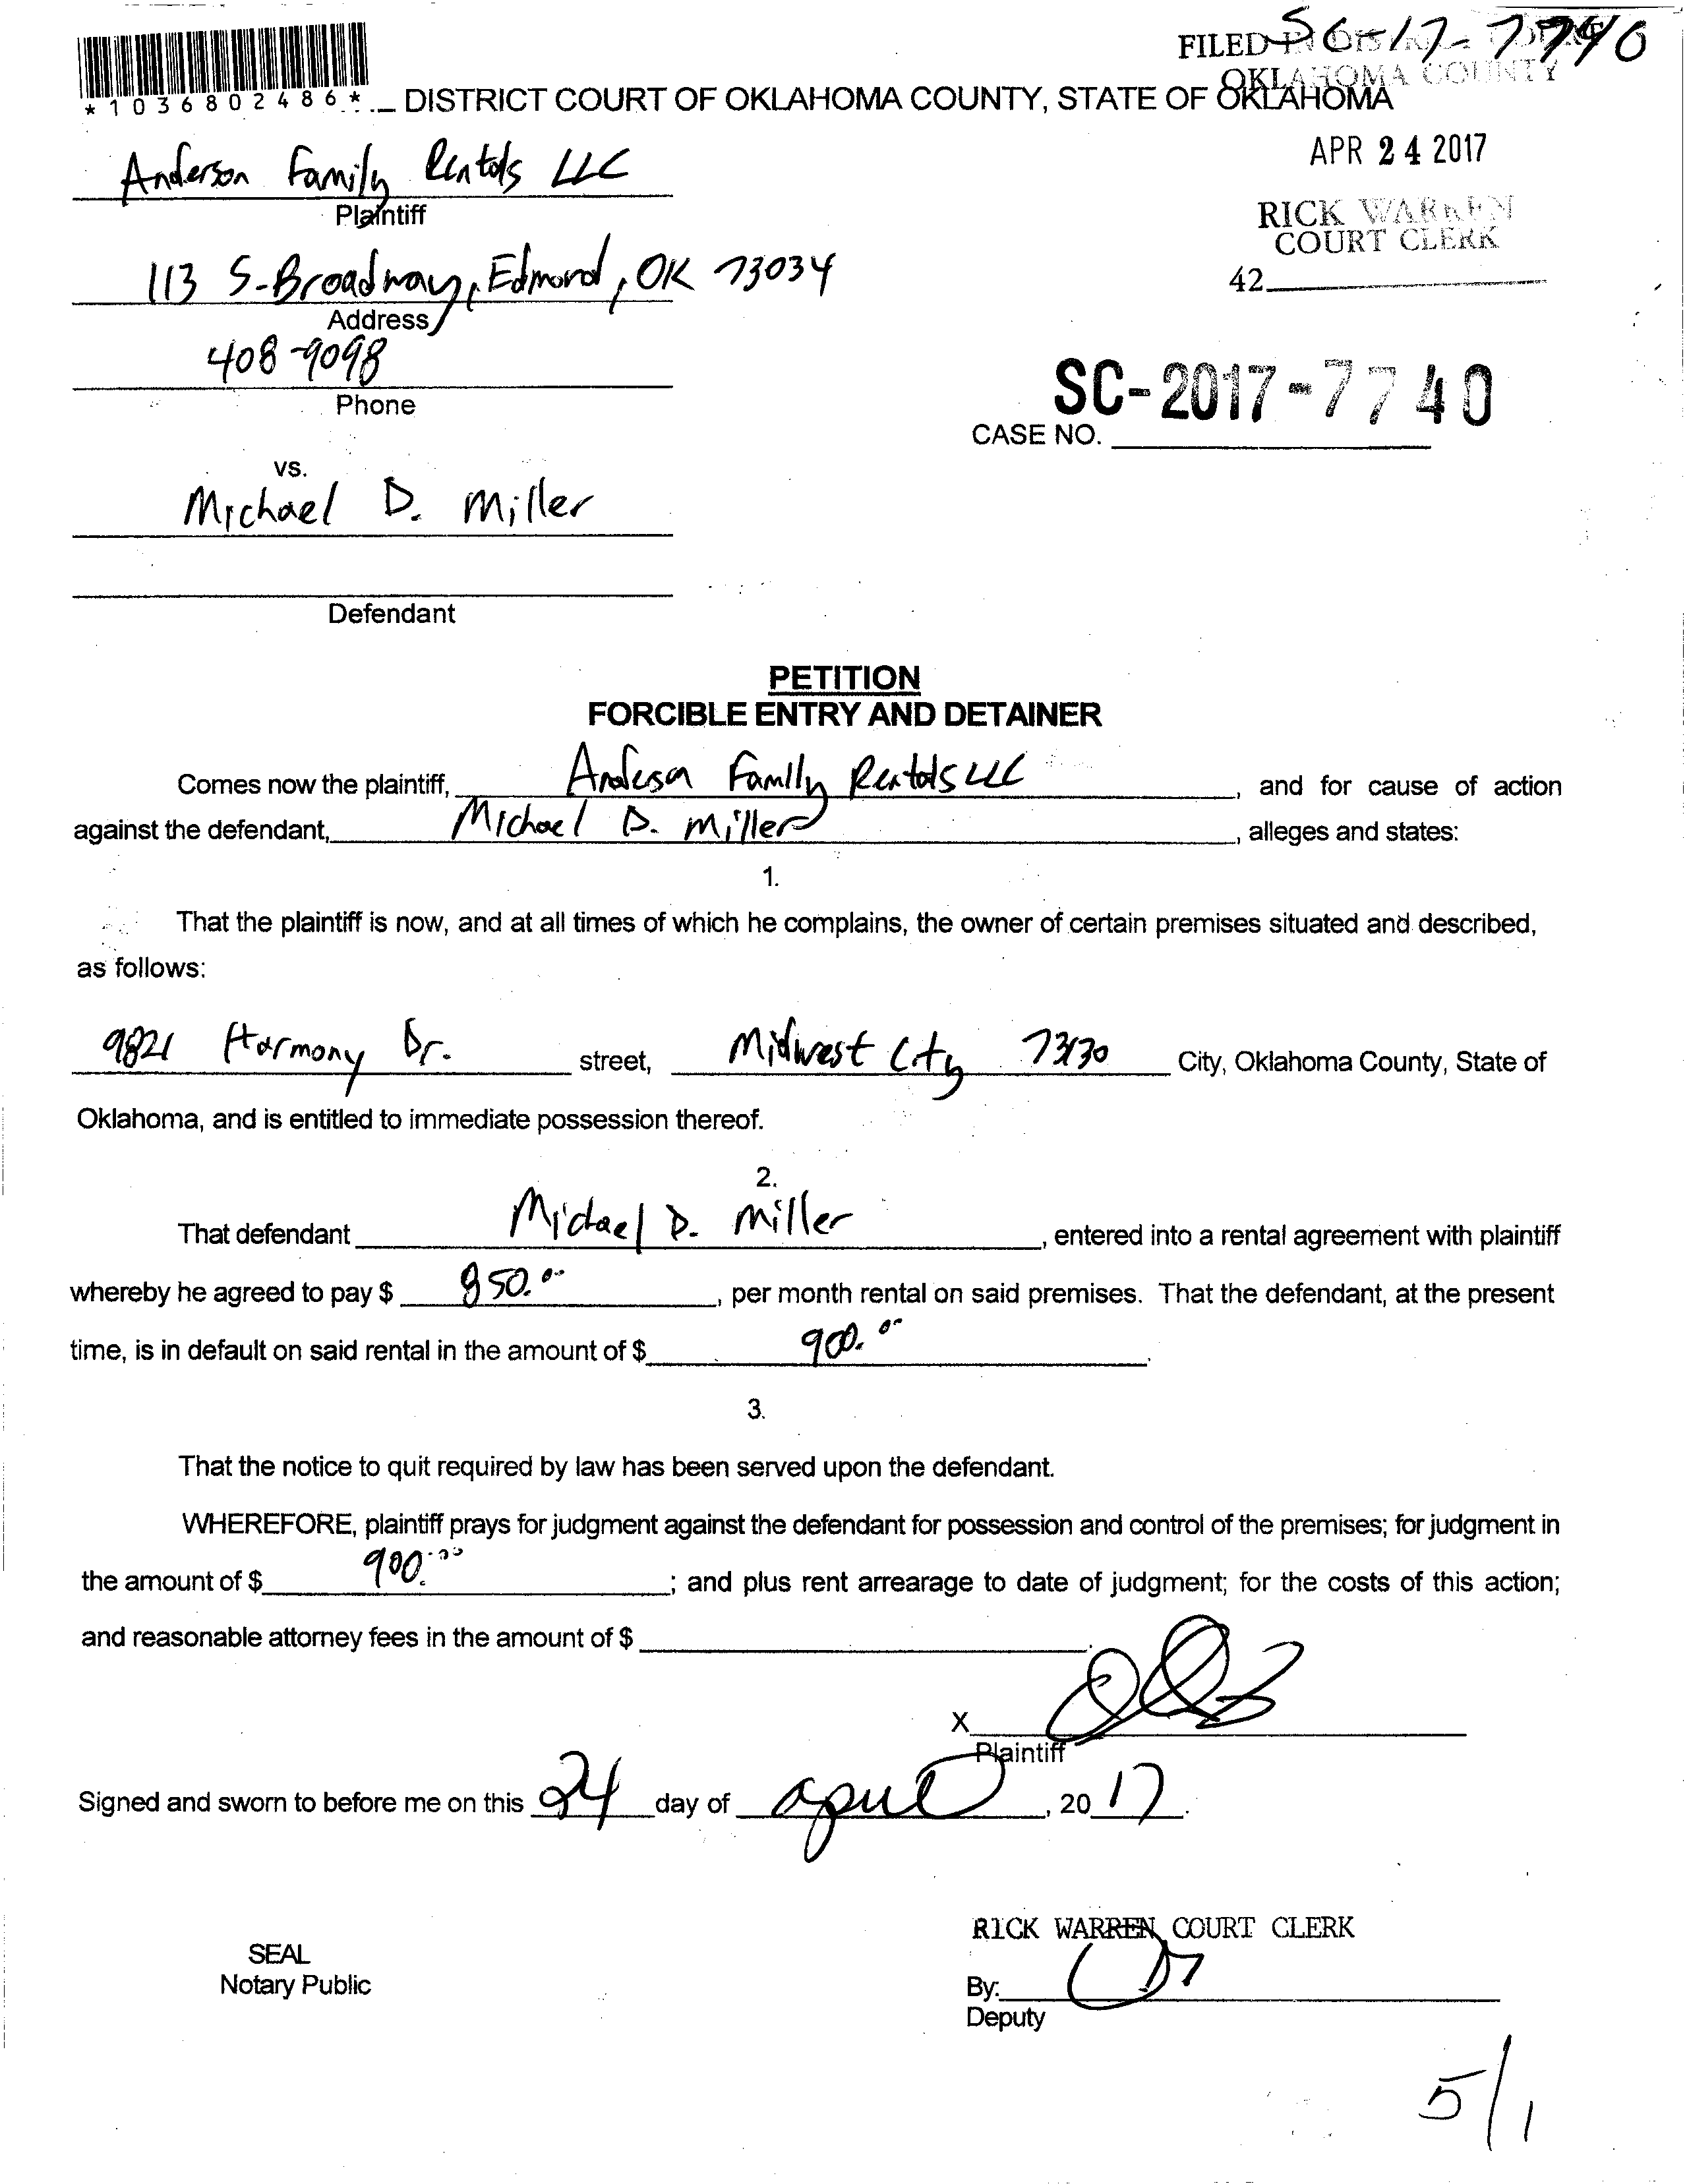 SC-17-7740
FILED IN DISTRICT COURT
OKLAHOMA COUNTY
*1036802486*
DISTRICT COURT OF OKLAHOMA COUNTY, STATE OF OKLAHOMA
APR 24 2017
Anderson Family Rentals LLC
Plaintiff
RICK WARREN
COURT CLERK
42
113 S. Broadway, Edmond, OK 73034
Address
408-9098
Phone
SC-2017-7740
CASE NO.
vs.
Michael D. Miller
Defendant
PETITION
FORCIBLE ENTRY AND DETAINER
Comes now the plaintiff, Anderson Family Rentals LLC, and for cause of action
against the defendant, Michael D. Miller, alleges and states:
1.
That the plaintiff is now, and at all times of which he complains, the owner of certain premises situated and described,
as follows:
9821 Harmony Dr. street, Midwest City 73130 City, Oklahoma County, State of
Oklahoma, and is entitled to immediate possession thereof.
2.
That defendant Michael D. Miller, entered into a rental agreement with plaintiff
whereby he agreed to pay $ 850.00, per month rental on said premises. That the defendant, at the present
time, is in default on said rental in the amount of $ 900.00.
3.
That the notice to quit required by law has been served upon the defendant.
WHEREFORE, plaintiff prays for judgment against the defendant for possession and control of the premises; for judgment in
the amount of $ 900.00; and plus rent arrearage to date of judgment; for the costs of this action;
and reasonable attorney fees in the amount of $ .
X
Plaintiff
Signed and sworn to before me on this 24 day of April, 2017.
RICK WARREN, COURT CLERK
SEAL
Notary Public
By:
Deputy
5/1